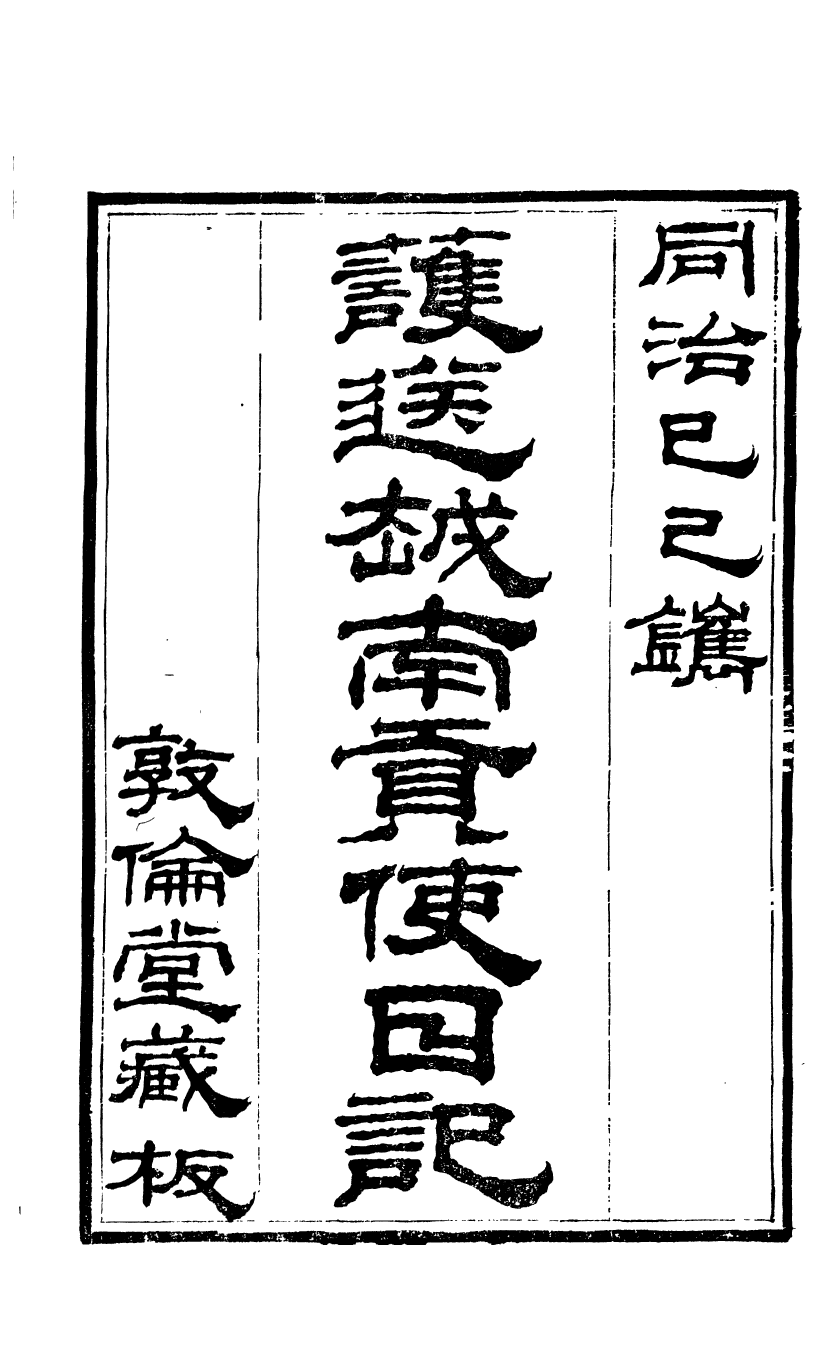 同治己巳鐫
護送越南貢使日記
敦倫堂藏板